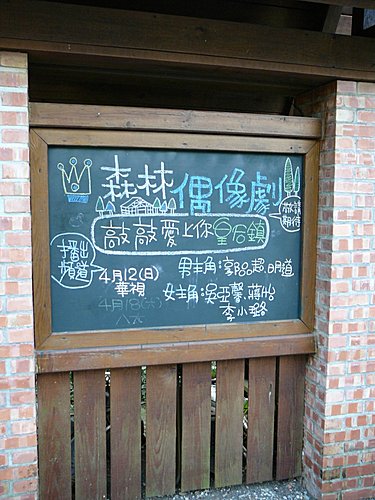 森林偶像劇
敬請
期待
敲敲愛上你皇后鎮
播出
頻道
4月12(日)
華視
4月18(六)
八大
男主角:郭品超,明道
女主角:吳亞馨、蔣怡
李小璐